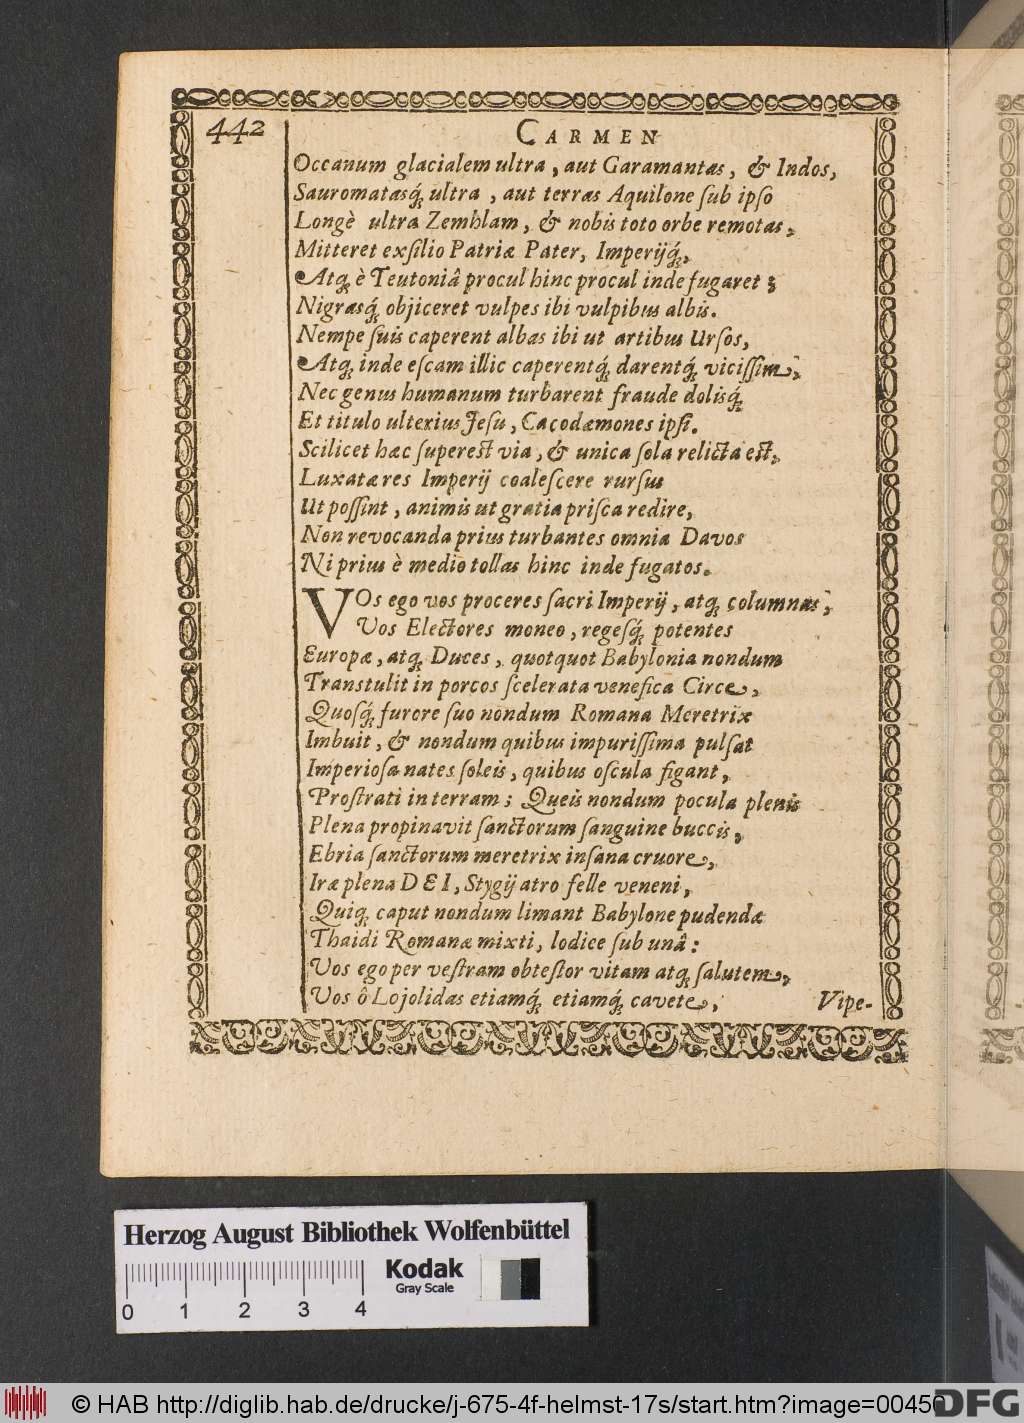 442 CARMEN
Occanum glacialem ultra, aut Garamantas, & Indos,
Sauromatasq́; ultra, aut terras Aquilone ſub ipſo
Longè ultra Zemblam, & nobis toto orbe remotas,
Mitteret exſilio Patriæ Pater, Imperijq́;,
Atq; è Teutoniâ procul hinc procul inde fugaret;
Nigrasq́; objiceret vulpes ibi vulpibus albis.
Nempe ſuis caperent albas ibi ut artibus Urſos,
Atq; inde eſcam illic caperentq́; darentq́; viciſſim,
Nec genus humanum turbarent fraude dolisq́;
Et titulo ulterius Jeſu, Cacodæmones ipſi.
Scilicet hæc ſupereſt via, & unica ſola relicta eſt,
Luxatæ res Imperij coaleſcere rurſus
Ut poſſint, animis ut gratia priſca redire,
Non revocanda prius turbantes omnia Davos
Ni prius è medio tollas hinc inde fugatos.
VOs ego vos proceres ſacri Imperij, atq; columnas,
Vos Electores moneo, regeſq́; potentes
Europæ, atq; Duces, quotquot Babylonia nondum
Transtulit in porcos ſcelerata venefica Circe,
Quoſq́; furore ſuo nondum Romana Meretrix
Imbuit, & nondum quibus impuriſſima pulſat
Imperioſa nates ſoleis, quibus oſcula figant,
Proſtrati in terram; Queis nondum pocula plenis
Plena propinavit ſanctorum ſanguine buccis,
Ebria ſanctorum meretrix inſana cruore,
Iræ plena DEI, Stygij atro felle veneni,
Quiq; caput nondum limant Babylone pudendæ
Thaidi Romanæ mixti, lodice ſub unâ:
Vos ego per veſtram obteſtor vitam atq; ſalutem,
Vos ô Lojolidas etiamq́; etiamq́; cavete,
Vipe-
Herzog August Bibliothek Wolfenbüttel
Kodak
Gray Scale
0 1 2 3 4
© HAB http://diglib.hab.de/drucke/j-675-4f-helmst-17s/start.htm?image=00450
DFG